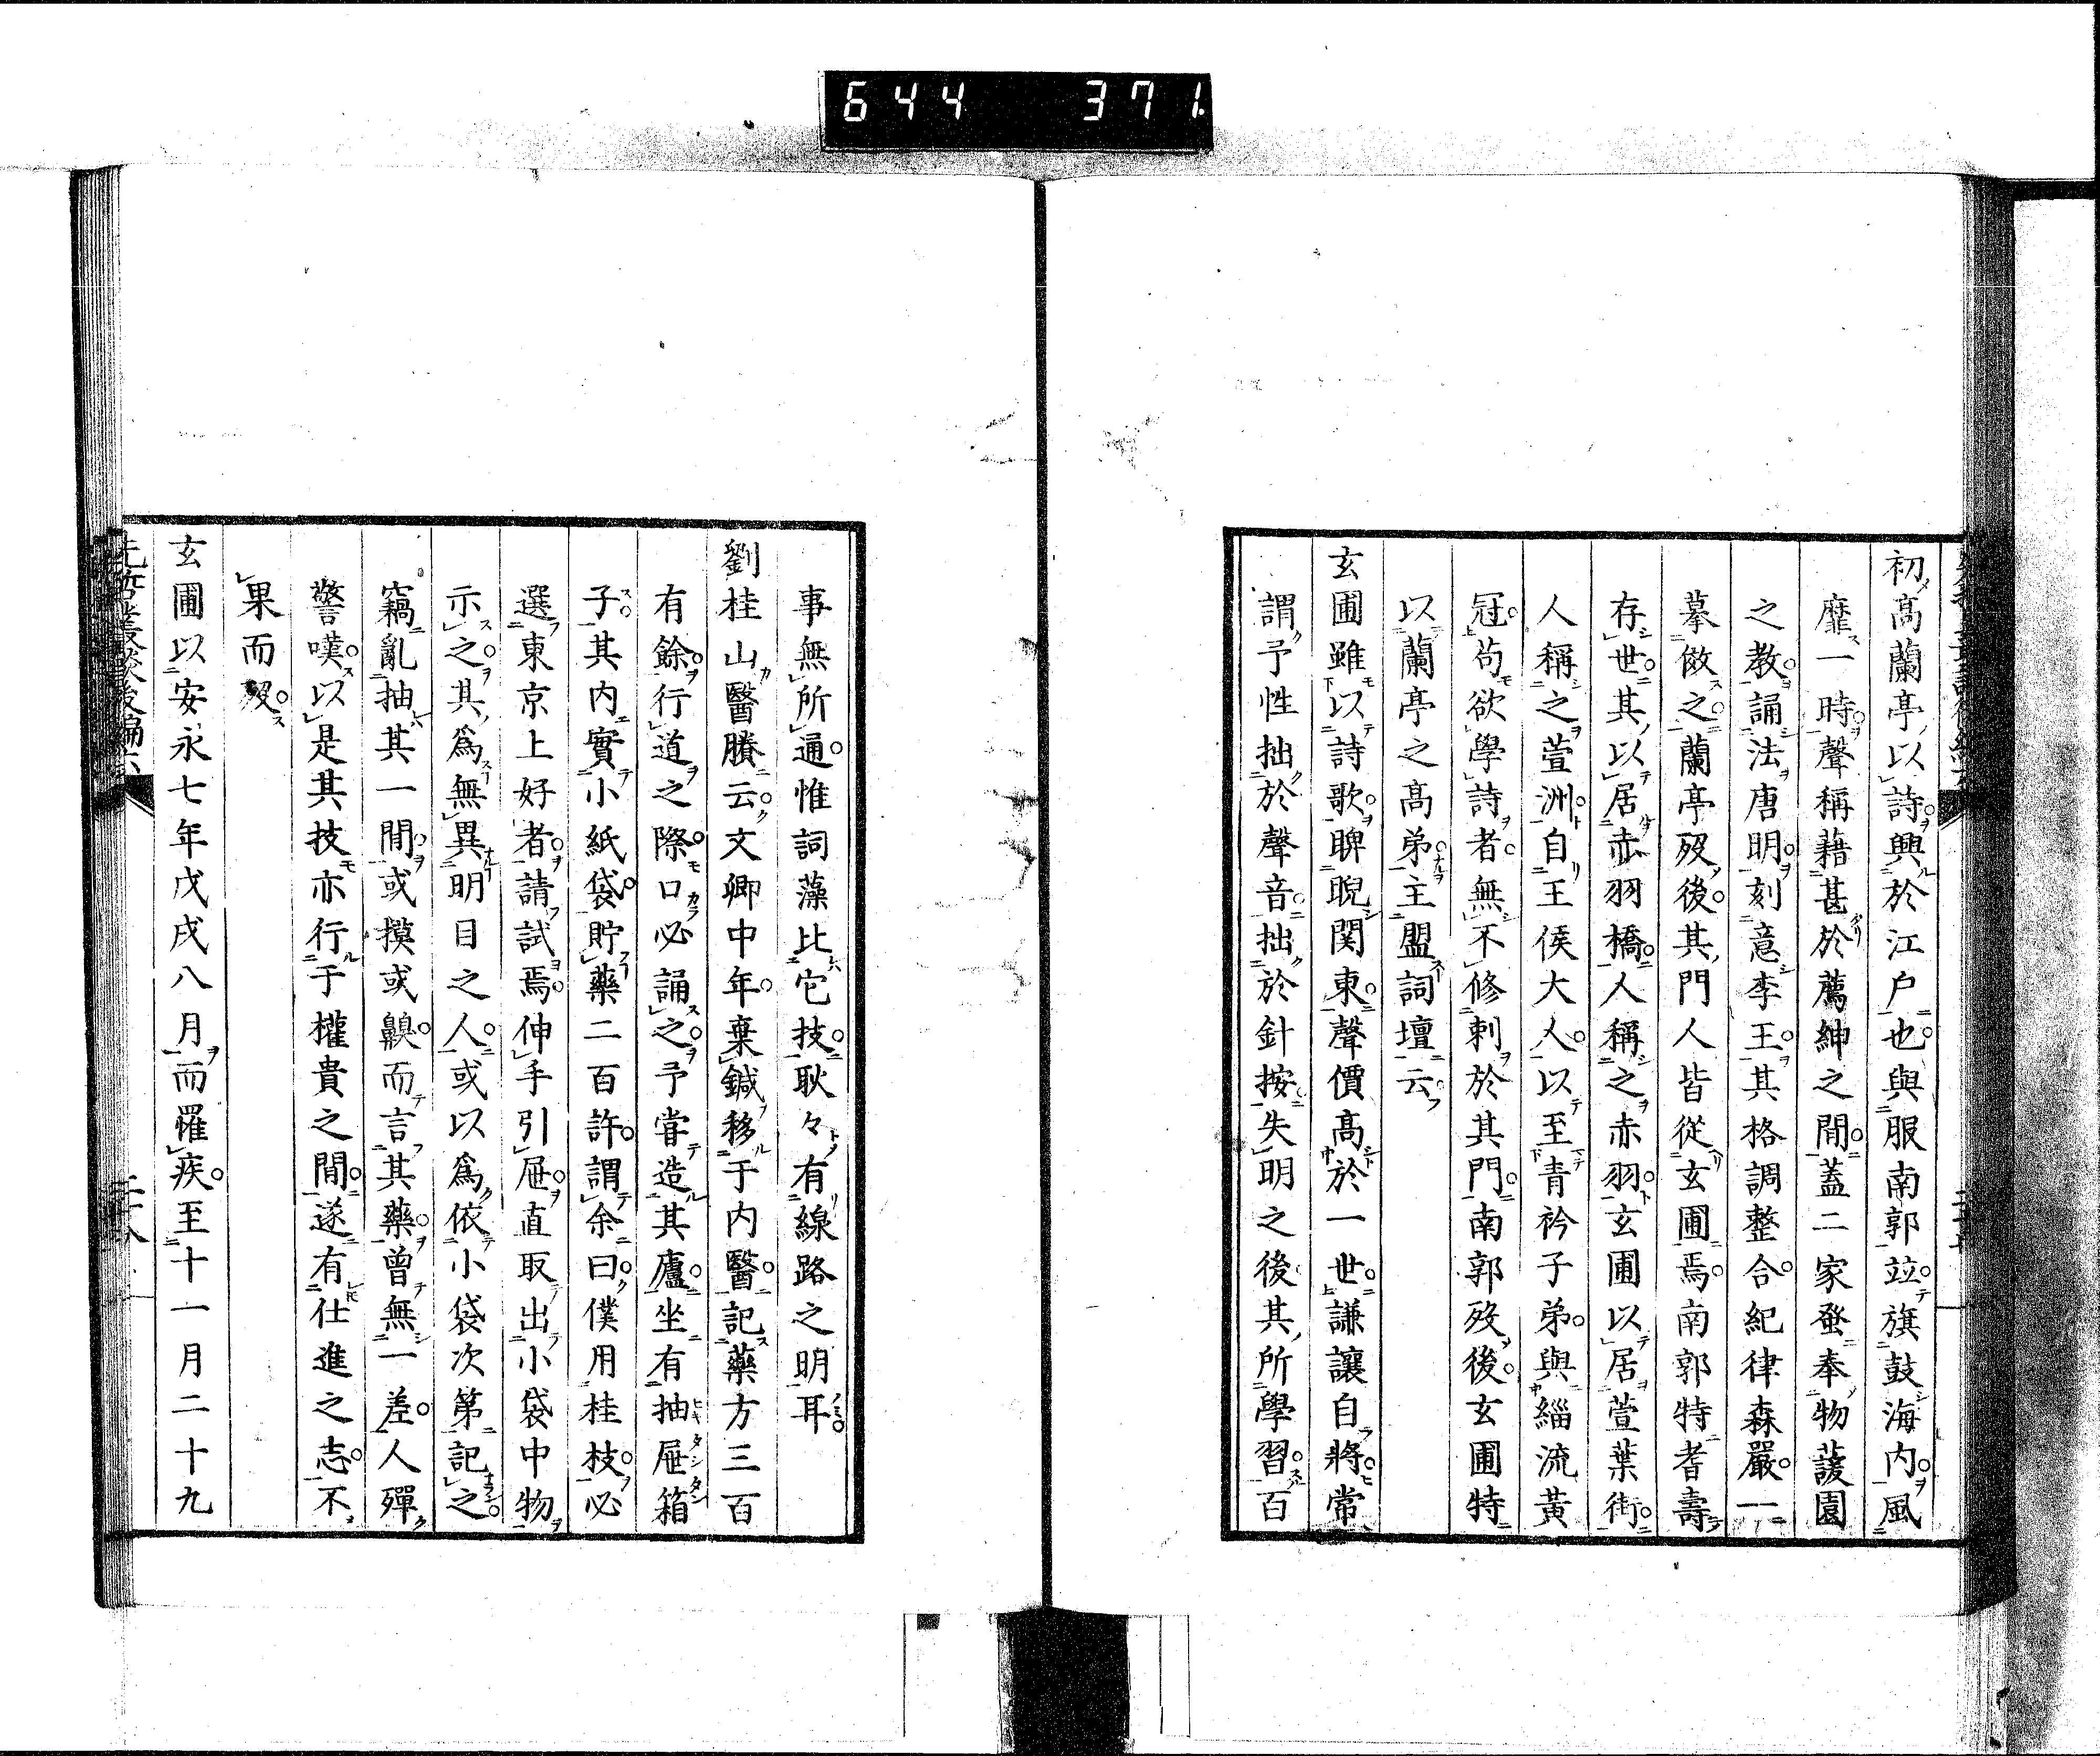 644 371
初高蘭亭以詩興於江戸也與服南郭竝旗鼓海内風
靡一時聲稱藉甚於薦紳之間蓋二家發奉物蘐園
之教誦法唐明刻意李王其格調整合紀律森嚴一
摹倣之蘭亭歿後其門人皆從玄圃焉南郭特耆壽
存世其以居赤羽橋人稱之赤羽玄圃以居萱葉街
人稱之萱洲自王侯大人以至青衿子弟與緇流黄
冠苟欲學詩者無不修刺於其門南郭歿後玄圃特
以蘭亭之高弟主盟詞壇云
玄圃雖以詩歌睥睨関東聲價高於一世謙讓自將常
謂予性拙於聲音拙於針按失明之後其所學習百
事無所通惟詞藻比它技耿々有線路之明耳
劉桂山醫賸云文卿中年棄鍼移于内醫記藥方三百
有餘行道之際口必誦之予甞造其廬坐有抽屜箱
子其内實小紙袋貯藥二百許謂余曰僕用桂枝必
選東京上好者請試焉伸手引屜直取出小袋中物
示之其爲無異明日之人或以爲依小袋次第記之
竊亂抽其一間或摸或齅而言其藥曾無一差人殫
警嘆以是其技亦行于權貴之間遂有仕進之志不
果而歿
玄圃以安永七年戊戌八月而罹疾至十一月二十九
先哲叢談後編六
二十八